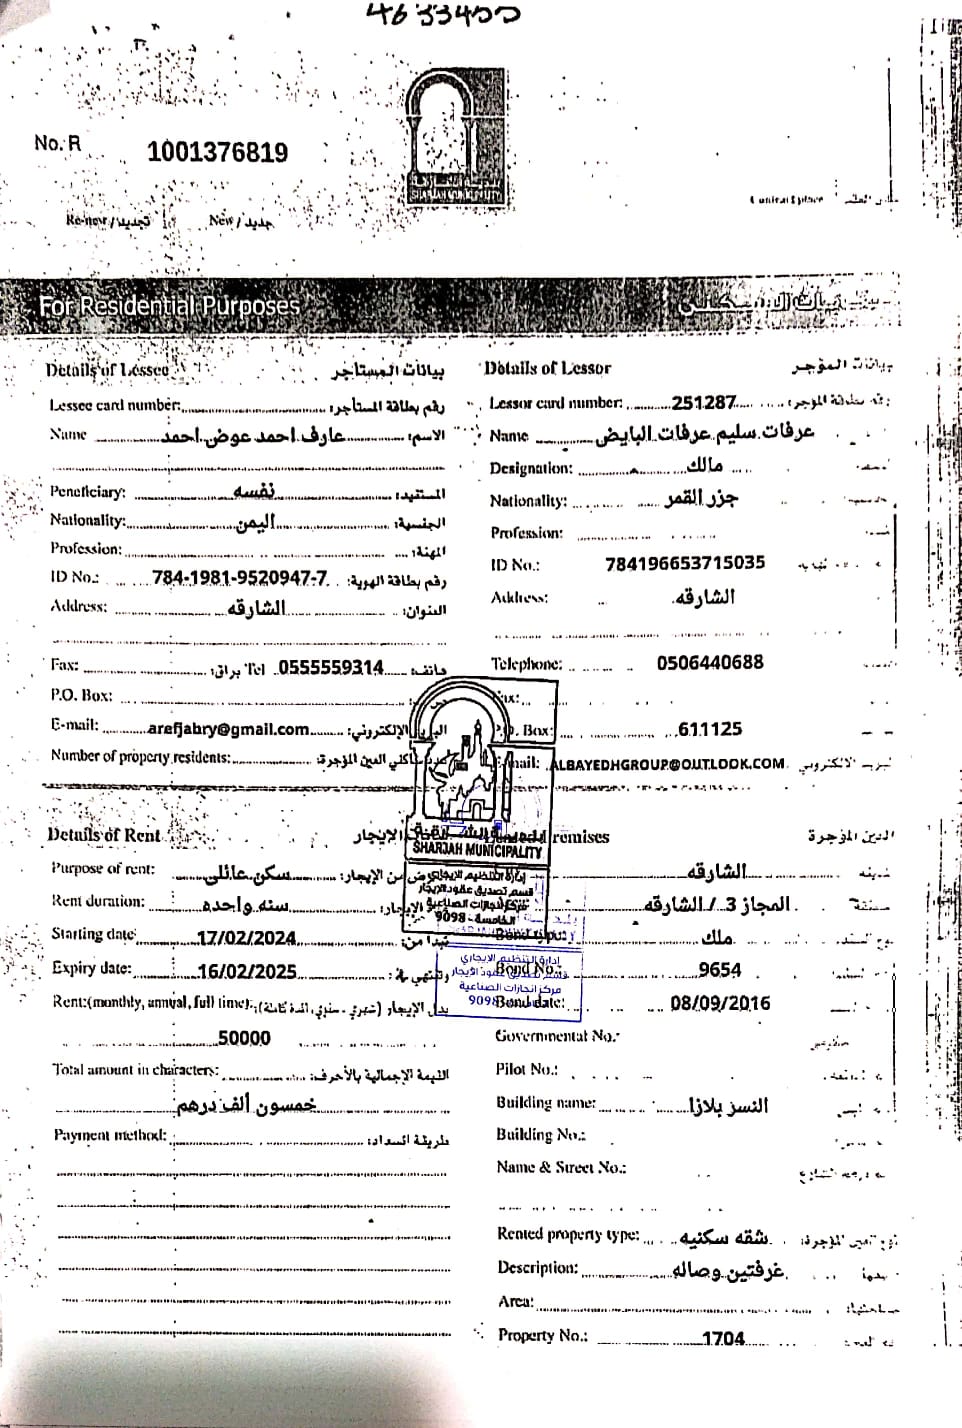 4633400
No. R 1001376819
SHARJAH MUNICIPALITY
Re-new / تجديد New / جديد
Contract place
For Residential Purposes
Details of Lessee بيانات المستأجر
Lessee card number: رقم بطاقة المستأجر:
Name عارف احمد عوض احمد الاسم:
Peneficiary: نفسه المستفيد:
Nationality: اليمن الجنسية:
Profession: المهنة:
ID No.: 784-1981-9520947-7 رقم بطاقة الهوية:
Address: الشارقه العنوان:
Fax: براق: Tel 0555559314 هاتف:
P.O. Box:
E-mail: arefjabry@gmail.com البريد الإلكتروني:
Number of property residents: العين المؤجرة:
Details of Lessor بيانات المؤجر
Lessor card number: 251287 رقم بطاقة المؤجر:
Name عرفات سليم عرفات البايض
Designation: مالك
Nationality: جزر القمر
Profession:
ID No.: 784196653715035
Address: الشارقه
Telephone: 0506440688
Fax:
P.O. Box: 611125
Email: ALBAYEDHGROUP@OUTLOOK.COM البريد الالكتروني
SHARJAH MUNICIPALITY
إدارة التنظيم الإيجاري
قسم تصديق عقود الإيجار
مركز انجازات الصناعية
الخامسة - 9098
إدارة التنظيم الإيجاري
قسم تصديق عقود الإيجار
مركز انجازات الصناعية
9098
Details of Rent الإيجار
Purpose of rent: سكن عائلي الغرض من الإيجار:
Rent duration: سنه واحده الإيجار:
Starting date 17/02/2024 تبدأ من:
Expiry date: 16/02/2025 وتنتهي في:
Rent:(monthly, annual, full time): بدل الإيجار (شهري - سنوي - المدة كاملة):
50000
Total amount in characters: القيمة الإجمالية بالأحرف:
خمسون ألف درهم
Payment method: طريقة السداد:
premises العين المؤجرة
الشارقه مدينة
المجاز 3 / الشارقه منطقة
Bond type: ملك
Bond No.: 9654
Bond date: 08/09/2016
Governmental No.:
Pilot No.:
Building name: النسر بلازا
Building No.:
Name & Street No.:
Rented property type: شقه سكنيه نوع العين المؤجرة:
Description: غرفتين وصاله
Area:
Property No.: 1704